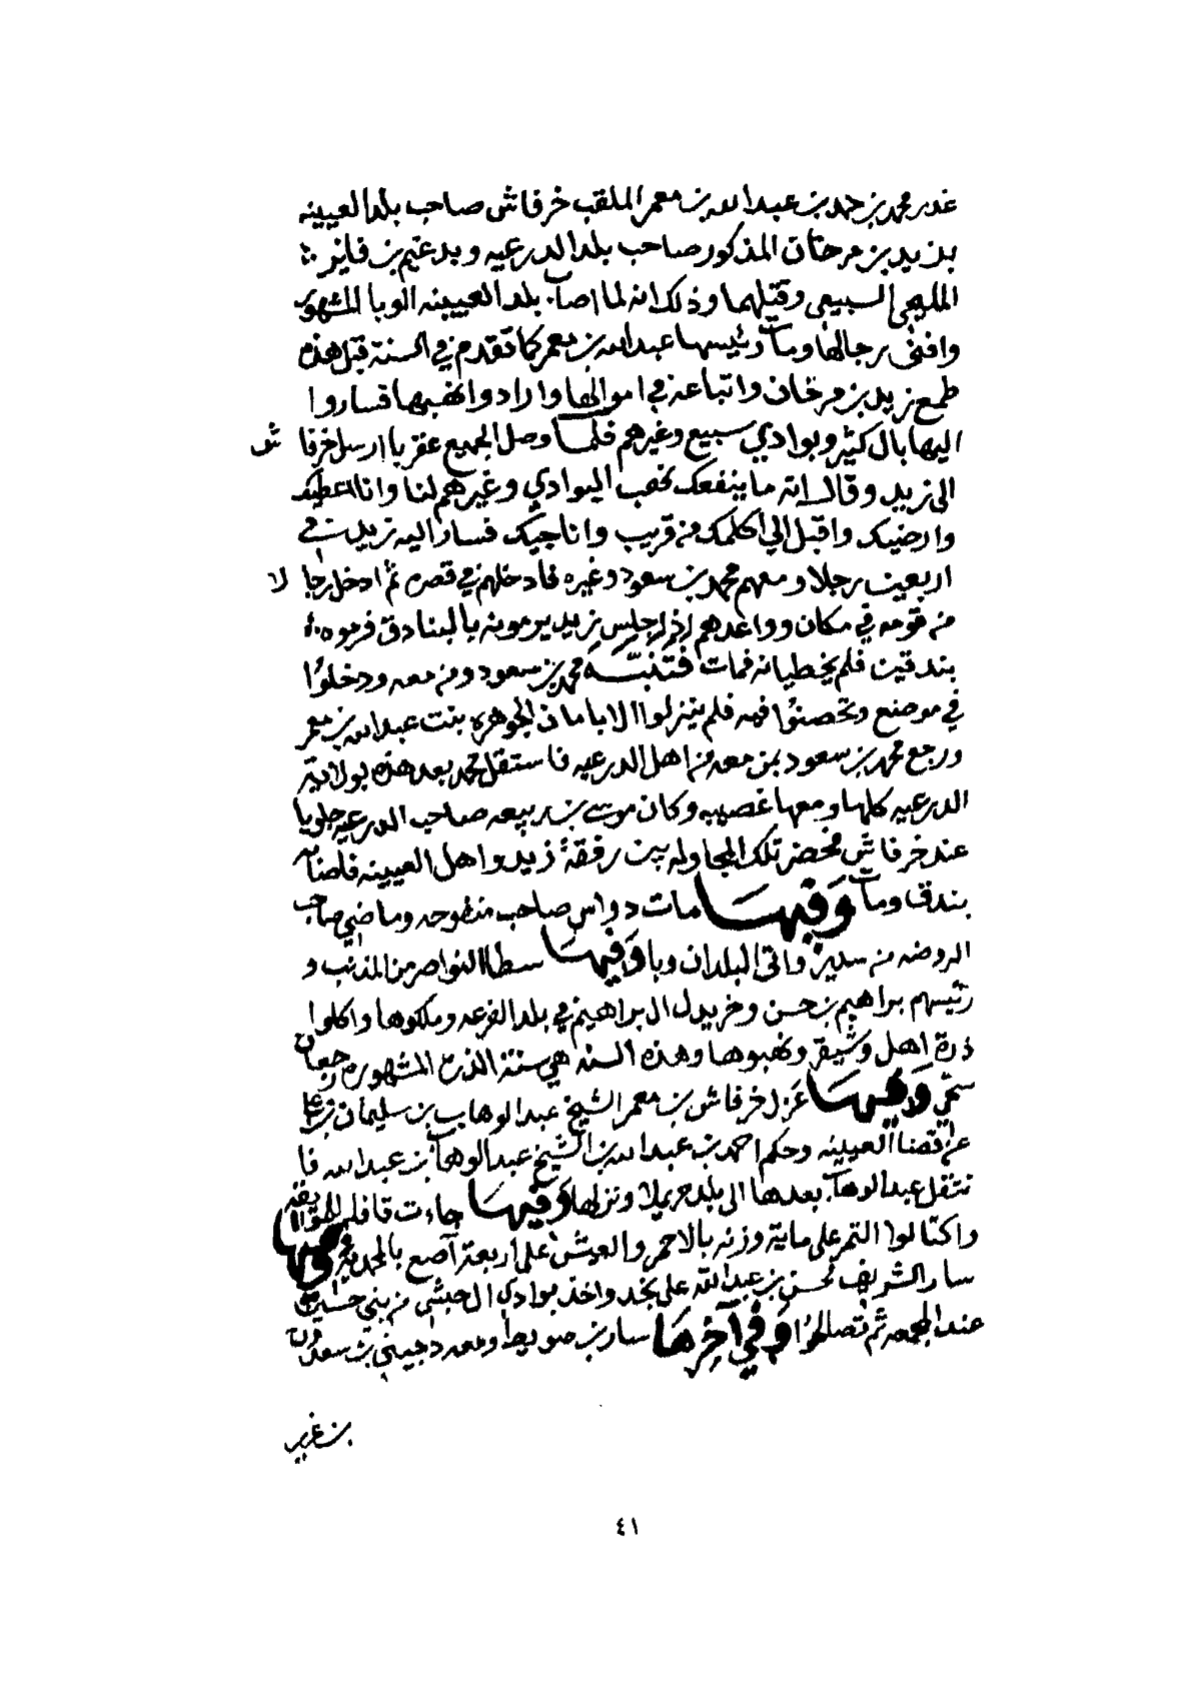 غدر محمد بن حمد بن عبدالله بن معمر الملقب خرفاش صاحب بلد العيينه
بزيد بن مرخان المذكور صاحب بلد الدرعيه وبدغيم بن فايز
المليحي السبيعي وقتلهما وذلك انه لما اصاب بلد العيينه الوبا المشهور
وافنى رجالها ومات رئيسها عبدالله بن معمر كما تقدم في السنة قبل هذه
طمع زيد بن مرخان واتباعه في اموالها وارادوا نهبها فساروا
اليها بال كثير وبوادي سبيع وغيرهم فلما وصل الجميع عقربا ارسل خرفاش
الى زيد وقال انه ما ينفعك نهب البوادي وغيرهم لنا وانا اعطيك
وارضيك واقبل الي اكلمك من قريب وانا جيك فسار اليه زيد في
اربعين رجلا ومعهم محمد بن سعود وغيره فادخلهم في قصره ثم ادخل رجالا
من قومه في مكان وواعدهم اذا جلس زيد يرمونه بالبنادق فرموه
بندقين فلم يخطيانه فمات فتنبه محمد بن سعود ومن معه ودخلوا
في موضع وتحصنوا فيه فلم ينزلوا الا بامان الجوهره بنت عبدالله بن معمر
ورجع محمد بن سعود بمن معه من اهل الدرعيه فاستقل محمد بعد هذه بولاية
الدرعيه كلها ومعها غصيبه وكان موسى بن ربيعه صاحب الدرعيه جلويا
عند خرفاش فحضر تلك المجاوله بين رفقة زيد واهل العيينه فاصابه
بندق ومات وفيها مات دواس صاحب منفوحه وماضي صاحب
الروضه من سدير وافى البلدان وبا وفيها سطا النواصر من المذنب و
رئيسهم براهيم بن حسن وخريدل ال براهيم في بلد الفرعه وملكوها واكلوا
ذرة اهل وشيقر ونهبوها وهذه السنه هي سنة الذرة المشهوره رجعان
سمي وفيها عزل خرفاش بن معمر الشيخ عبدالوهاب بن سليمان بن علي
عن قضا العيينه وحكم احمد بن عبدالله بن الشيخ عبدالوهاب بن عبدالله فا
نتقل عبدالوهاب بعدها الى بلد حريملا ونزلها وفيها جاءت قافله
واكتالوا التمر على ماية وزنه بالاحمر والعيش على اربعة آصع بالمحمديه وفيها
سار الشريف محسن بن عبدالله على نجد واخذ بوادي ال حبشي من بني حسين
عند المجمعه ثم تصالحوا وفي آخرها سار بن صويط ومعه دجيني بن سعدون
بن غرير
٤١